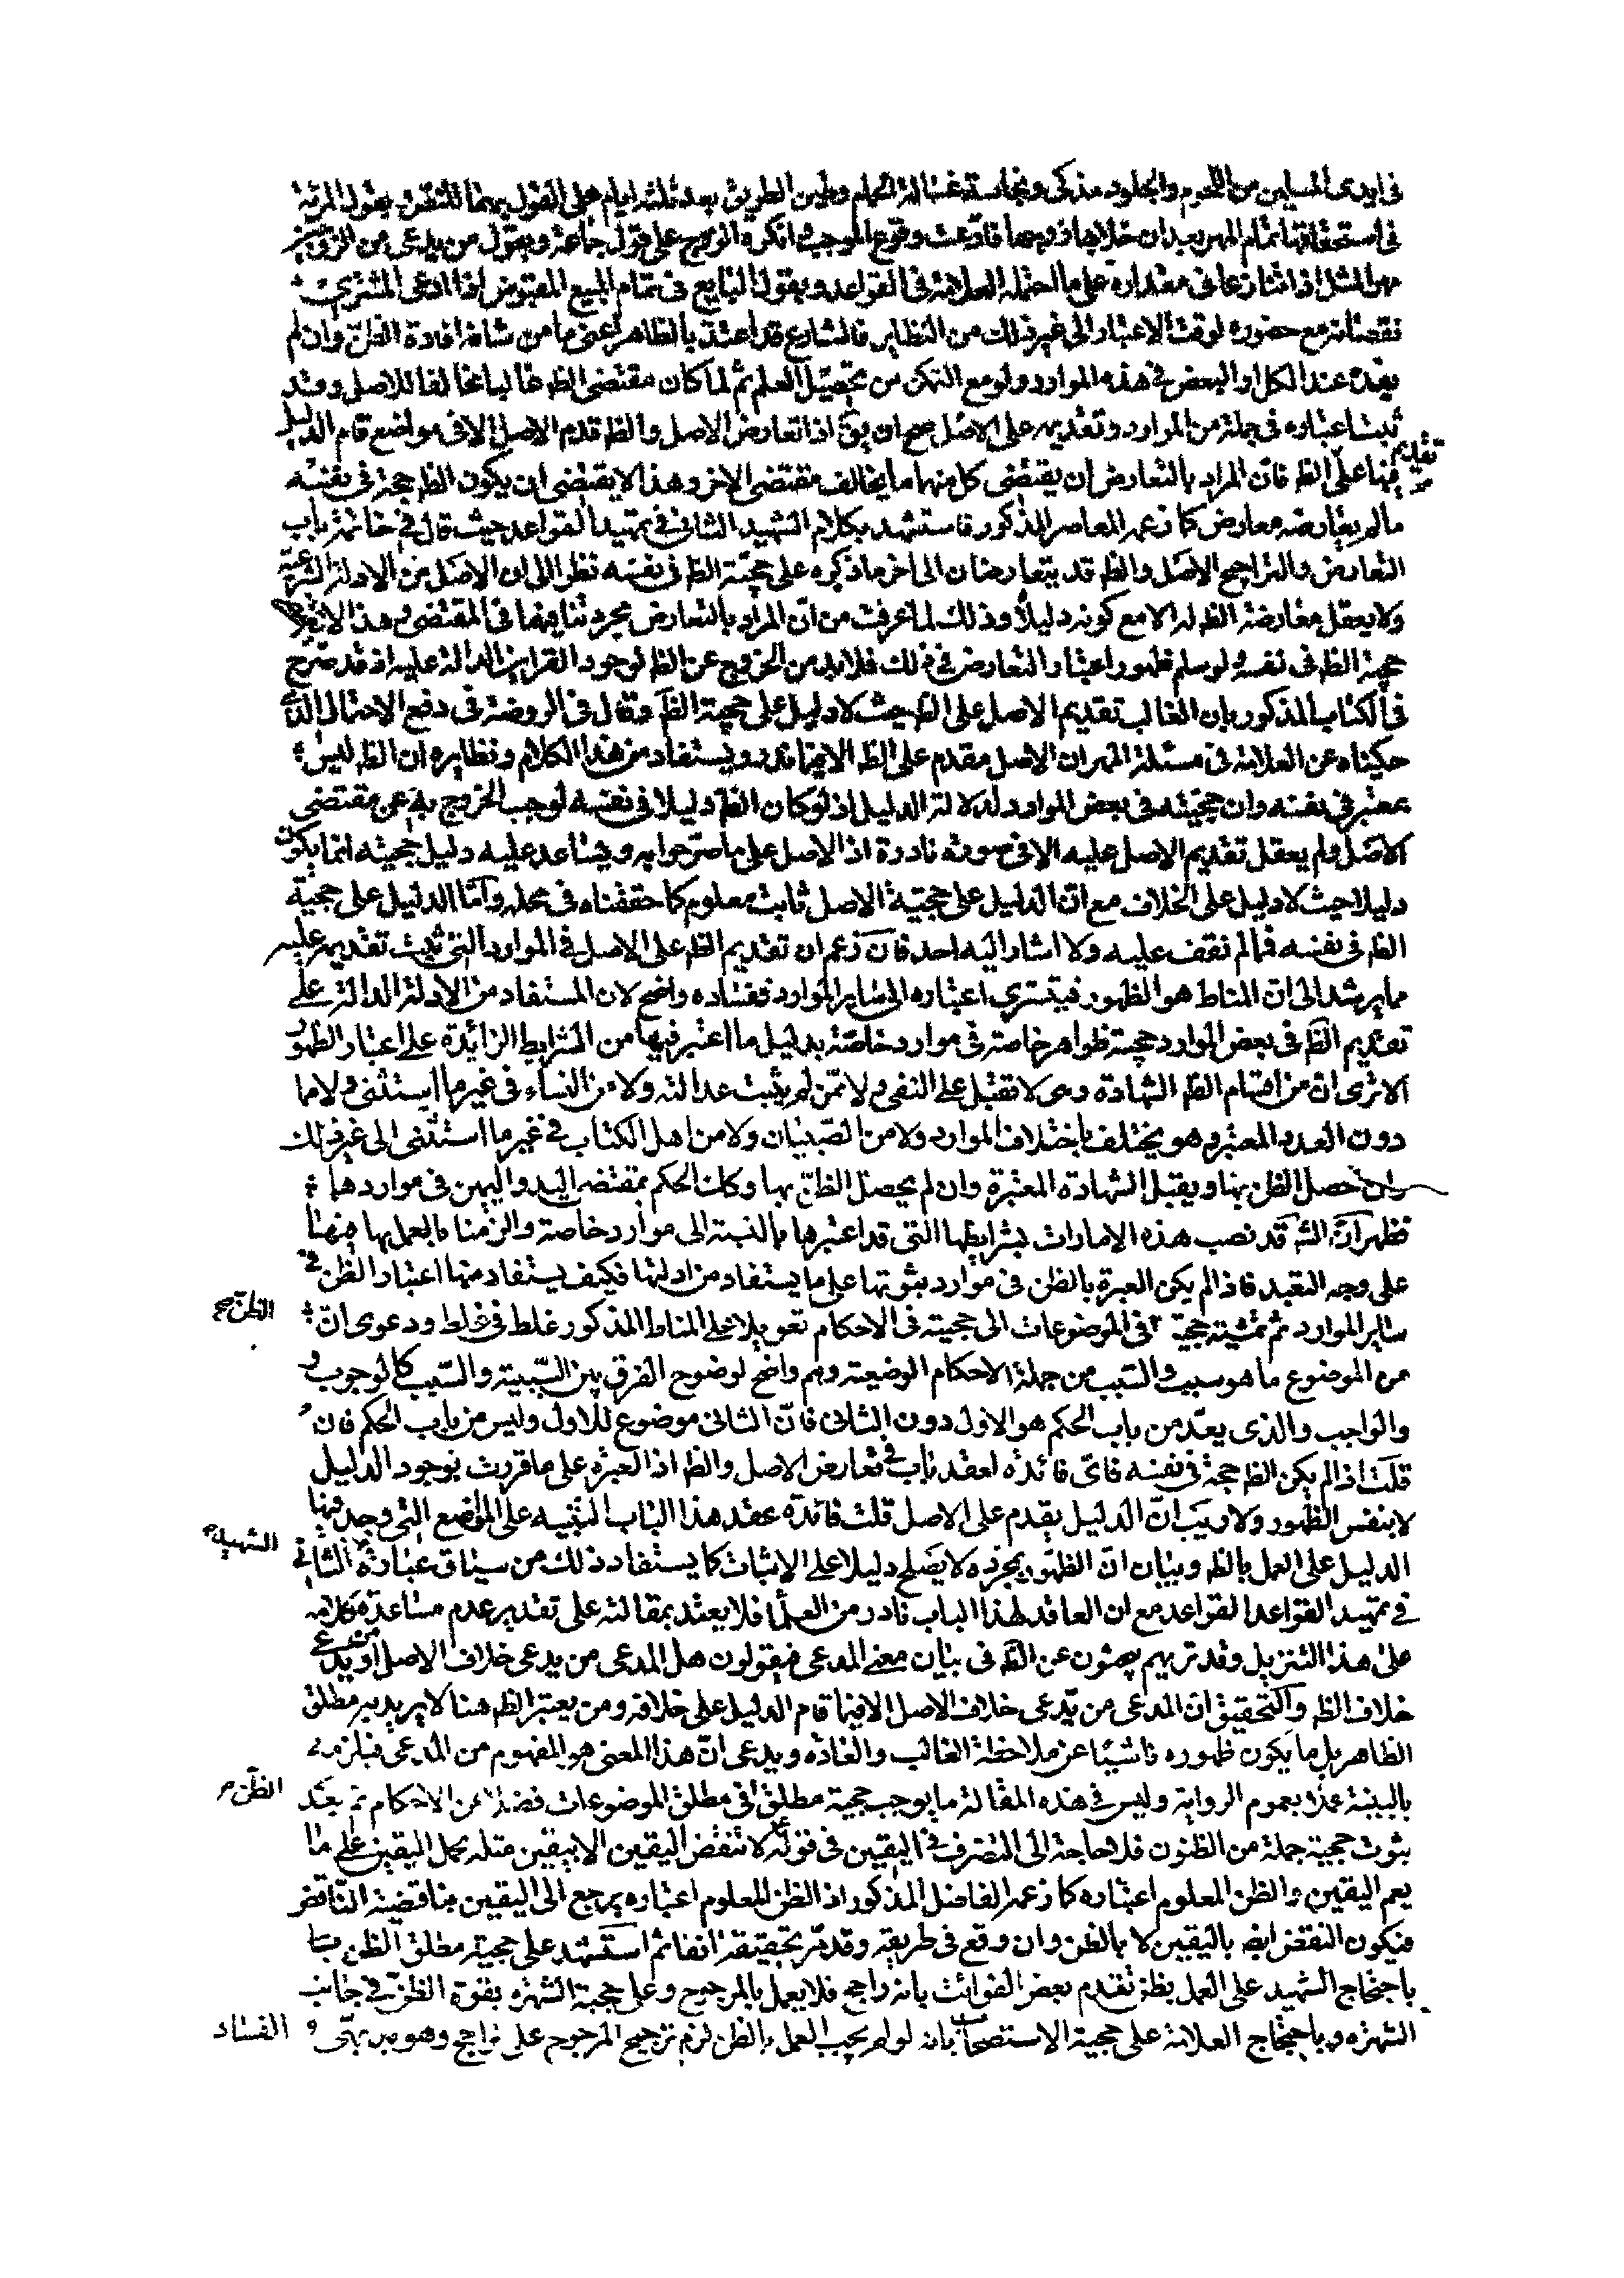 فى ايدى المسلمين من اللحوم والجلود مذكى ونجاسة غسالة الحمام وطين الطريق بعد ثلثة ايام على القول بهما للتقر وبقول المرئة
فى استحقاقها تمام المهر بعد ان خلا بها زوجها فادّعت وقوع الموجب وانكره الزوج على قول جماعة وبقول من يدعى من الزوجين
مهر المثل اذا تنازعا فى مقداره على ما احتمله العلامة فى القواعد وبقول البايع فى تمام المبيع المقبوض اذا ادعى المشترى
نقصانه مع حضوره لوقت الاعتبار الى غير ذلك من النظاير فالشارع قد اعتدّ بالظاهر اعنى ما من شانه افادة الظنّ وان لم
يفده عند الكل او البعض فى هذه الموارد ولو مع التمكن من تحصيل العلم ثم لما كان مقتضى الظ غالبا مخالفا للاصل وقد
ثبت اعتباره فى جملة من الموارد وتقديمه على الاصل صح ان يقّ اذا تعارض الاصل والظ قدم الاصل الا فى مواضع قام الدليل
تقديم
فيها على الظ فانّ المراد بالتعارض ان يقتضى كل منهما ما يخالف مقتضى الاخر وهذا لا يقتضى ان يكون الظ حجة فى نفسه
ما لم يعارضه معارض كما زعمه المعاصر المذكور فاستشهد بكلام الشهيد الثانى فى تمهيد القواعد حيث قال فى خاتمة باب
التعارض والتراجيح الاصل والظ قد يتعارضان الى اخر ما ذكره على حجيّة الظ فى نفسه نظرا الى ان الاصل من الادلة الشرعية
ولا يعقل معارضة الظ له الا مع كونه دليلا وذلك لما عرفت من انّ المراد بالتعارض مجرد تنافيهما فى المقتضى وهذا لا يقتضى
حجية الظ فى نفسه ولو سلم ظهور اعتبار التعارض فى ذلك فلا بد من الخروج عن الظ لوجود القراين الدالة عليه اذ قد صرّح
فى الكتاب المذكور بان الغالب تقديم الاصل على الظ حيث لا دليل على حجية الظ وقال فى الروضة فى دفع الاحتمال الذى
حكيناه عن العلامة فى مسئلة المهر ان الاصل مقدم على الظ الا فيما ندر ويستفاد من هذا الكلام ونظايره ان الظ ليس
بمعتبر فى نفسه وان حجيته فى بعض الموارد لدلالة الدليل اذ لو كان الظ دليلا فى نفسه لوجب الخروج به عن مقتضى
الاصل ولم يعقل تقديم الاصل عليه الا فى صورة نادرة اذ الاصل على ما صرّحوا به ويساعد عليه دليل حجيته انما يكون
دليلا حيث لا دليل على الخلاف مع انّ الدليل على حجيّة الاصل ثابت معلوم كما حققناه فى محله وامّا الدليل على حجية
الظ فى نفسه فمما لم نقف عليه ولا اشار اليه احد فان زعم ان تقديم الظ على الاصل فى الموارد التى ثبت تقديمه عليه
مما يرشد الى انّ المناط هو الظهور فيتسرى اعتباره الى ساير الموارد ففساده واضح لان المستفاد من الادلة الدالة على
تقديم الظ فى بعض الموارد حجية ظواهر خاصة فى موارد خاصّة بدليل ما اعتبر فيها من الشرايط الزائدة على اعتبار الظهور
الا ترى ان من اقسام الظ الشهادة وهى لا تقبل على النفى ولا ممّن لم يثبت عدالته ولا من النساء فى غير ما استثنى ولا مما
دون العدد المعتبر وهو يختلف باختلاف الموارد ولا من الصّبيان ولا من اهل الكتاب فى غير ما استثنى الى غير ذلك
وان حصل الظن بها ويقبل الشهادة المعتبرة وان لم يحصل الظنّ بها وكك الحكم بمقتضى اليد واليمين فى مواردهما
فظهر انّ الشّ قد نصب هذه الامارات بشرايطها التى قد اعتبرها بالنسبة الى موارد خاصة والزمنا بالعمل بها فيها
على وجه التعبد فاذا لم يكن العبرة بالظن فى موارد ثبوتها على ما يستفاد من ادلتها فكيف يستفاد منها اعتبار الظن فى
ساير الموارد ثم تمشيته حجية فى الموضوعات الى حجيته فى الاحكام تعويلا على المناط المذكور غلط فى غلط ودعوى انّ
الظن صح
من الموضوع ما هو سبب والسّبب من جملة الاحكام الوضيعة وهم واضح لوضوح الفرق بين السّببية والسّبب كالوجوب و
والواجب والذى يعدّ من باب الحكم هو الاول دون الثانى فانّ الثانى موضوع للاول وليس من باب الحكم فان
قلت اذا لم يكن الظ حجة فى نفسه فاىّ فائدة لعقد باب فى تعارض الاصل والظ اذ العبرة على ما قررت بوجود الدليل
لا بنفس الظهور ولا ريب انّ الدليل يقدم على الاصل قلت فائدة عقد هذا الباب التنبيه على المواضع التى وجد فيها
الدليل على العمل بالظ وبيان انّ الظهور بمجرّده لا يصلح دليلا على الاثبات كما يستفاد ذلك من سياق عبارة الثانى
الشهيد
فى تمهيد القواعد مع ان العاقد لهذا الباب نادر من العلماء فلا يعتد بمقالته على تقدير عدم مساعدة كلامه
على هذا التنزيل وقد تريهم يبحثون عن الظ فى بيان معنى المدعى فيقولون هل المدعى من يدعى خلاف الاصل او من يدعى
خلاف الظ والتحقيق ان المدعى من يدّعى خلاف الاصل الا فيما قام الدليل على خلافه ومن يعتبر الظ هنا لا يريد به مطلق
الظاهر بل ما يكون ظهوره ناشيًا عن ملاحظة الغالب والعادة ويدعى انّ هذا المعنى هو المفهوم من المدعى فيلزمه
بالبينة عملا بعموم الرواية وليس فى هذه المقالة ما يوجب حجية مطلق فى مطلق الموضوعات فضلا عن الاحكام ثم بعد
الظن
ثبوت حجية جملة من الظنون فلا حاجة الى التصرف فى اليقين فى قوله ع لا تنقض اليقين الا بيقين مثله بحمل اليقين على ما
يعم اليقين والظن المعلوم اعتباره كما زعمه الفاضل المذكور اذ الظن المعلوم اعتباره يرجع الى اليقين بناقضية الناقض
فيكون النقض ايض باليقين لا بالظن وان وقع فى طريقه وقد مرّ تحقيقه انفا ثم استشهد على حجية مطلق الظن
باحتجاج الشهيد على العمل بظن تقدم بعض الفوائت بانه راجح فلا يعمل بالمرجوح وعلى حجية الشهرة بقوة الظنّ فى جانب
الشهرة وباحتجاج العلامة على حجية الاستصحاب بانه لو لم يجب العمل بالظن لزم ترجيح المرجوح على الراجح وهو بديهى
الفساد